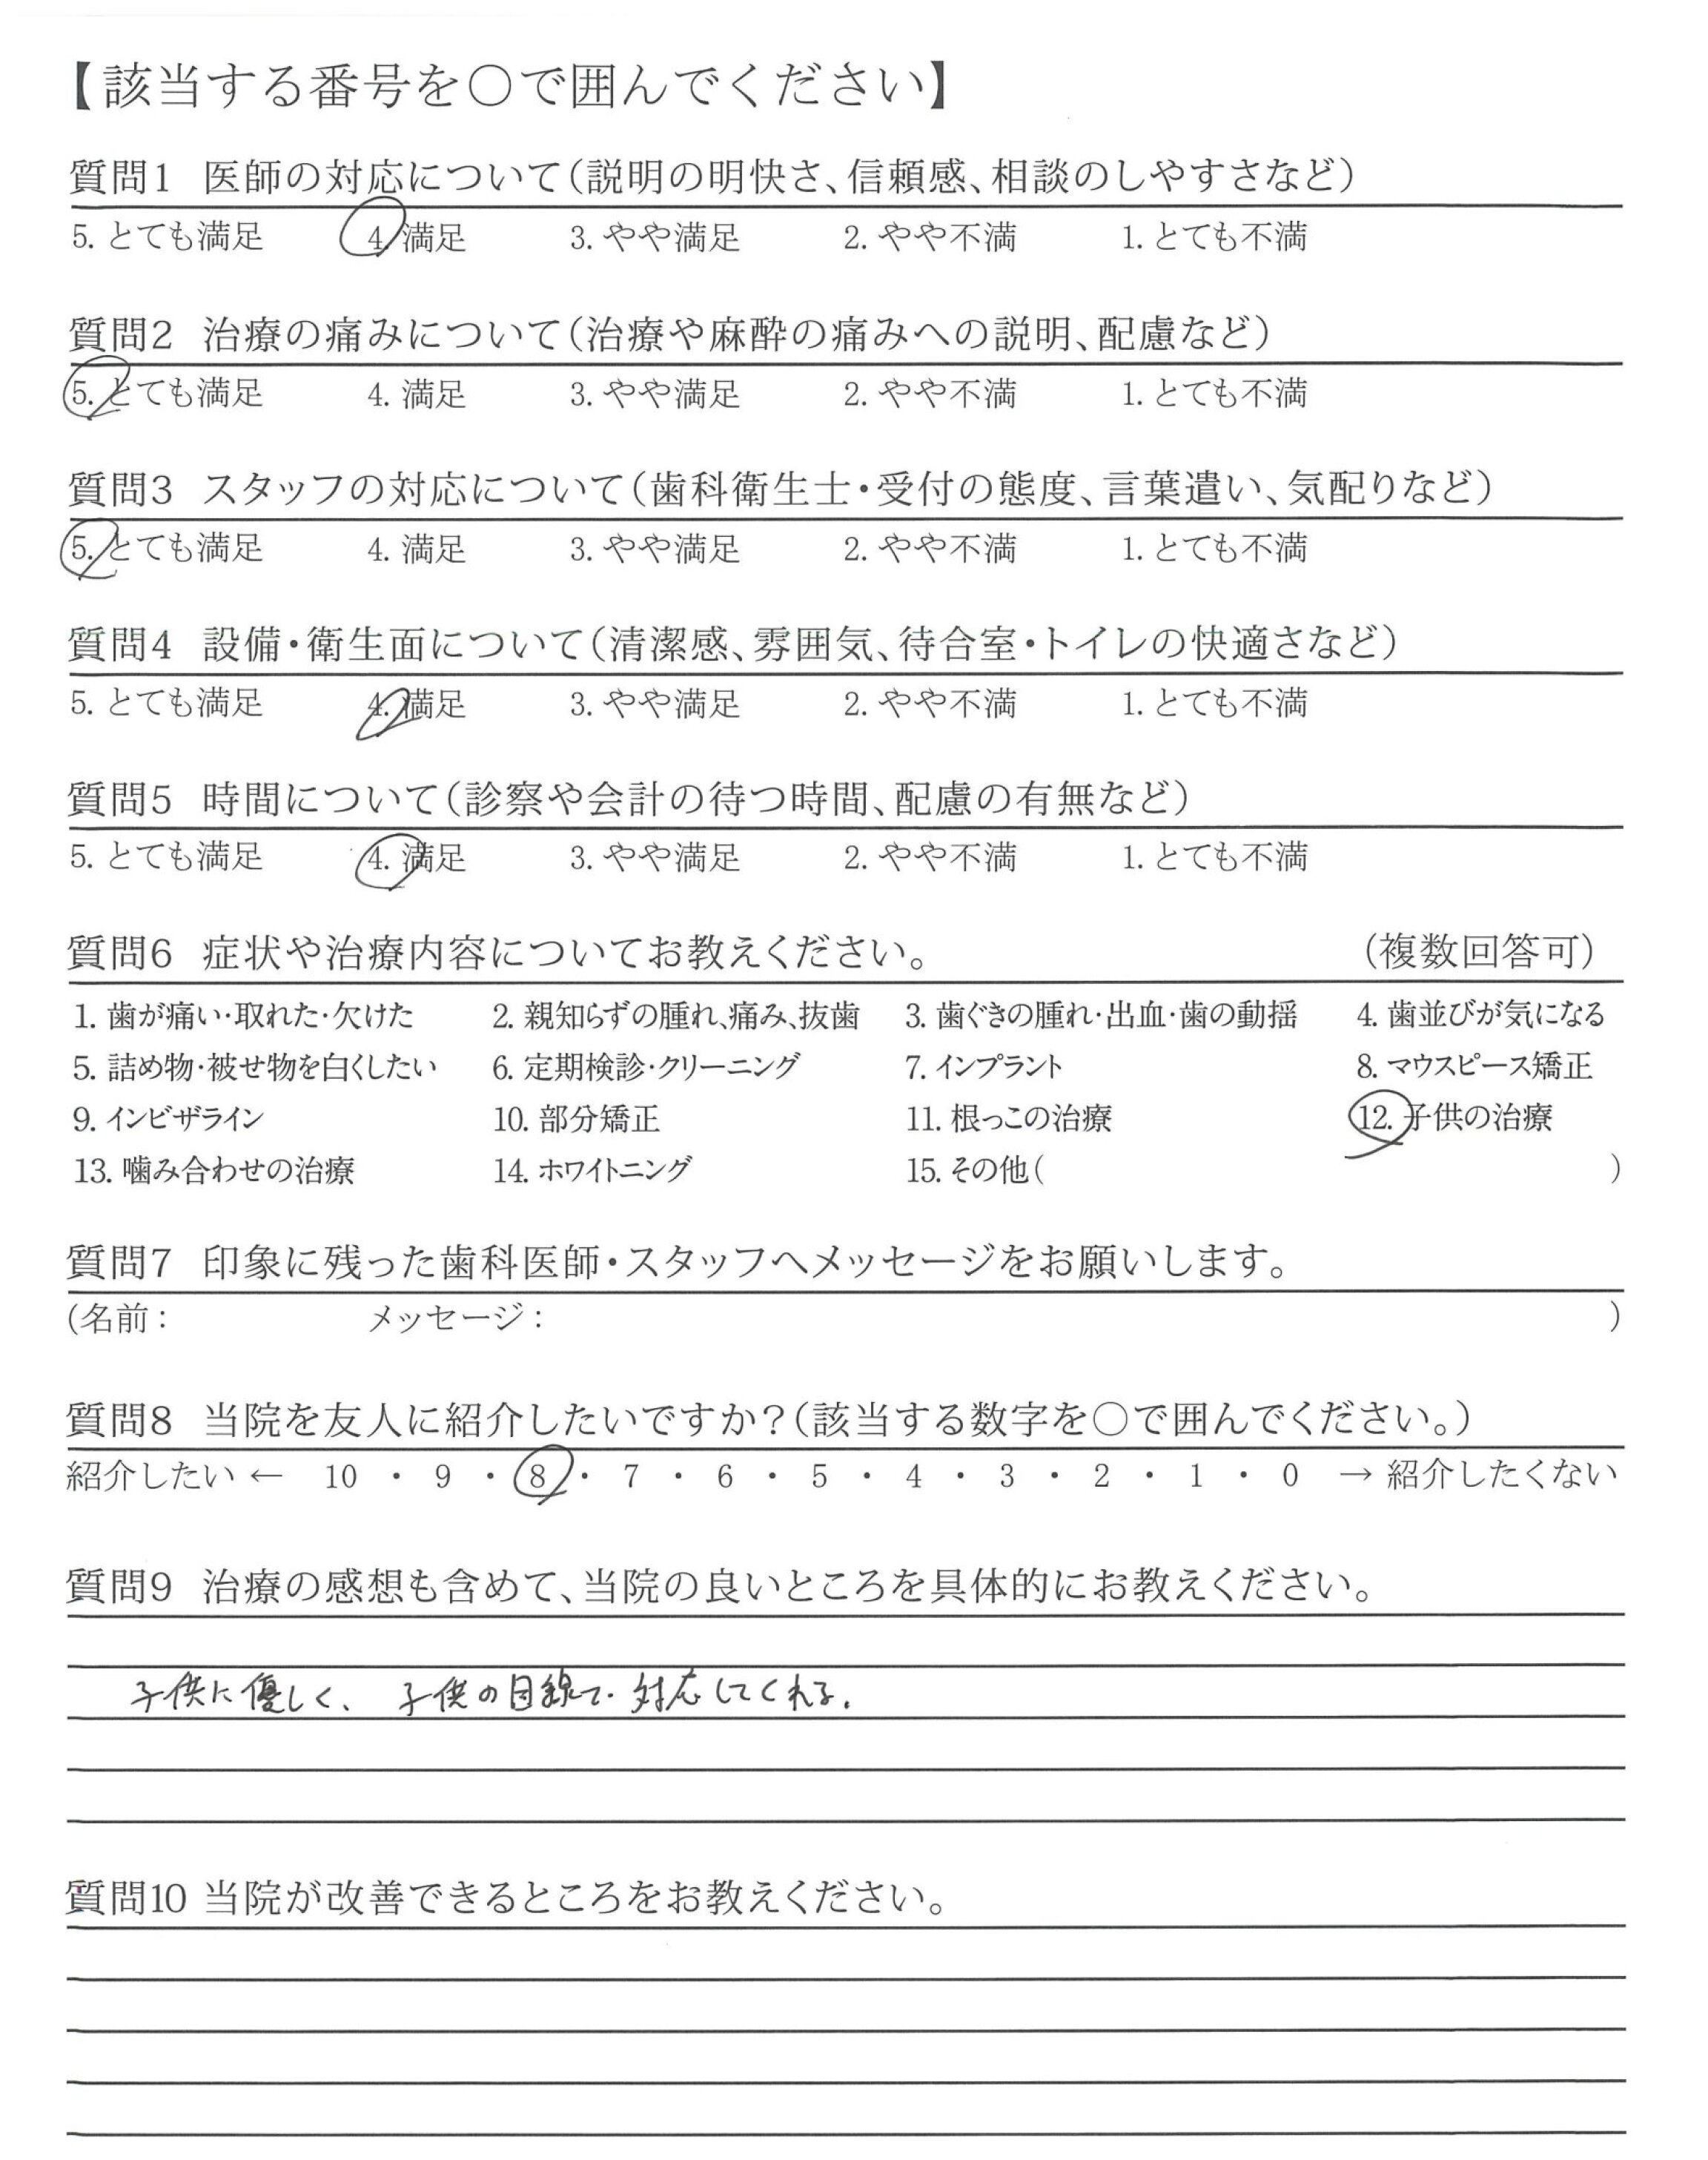 【該当する番号を○で囲んでください】
質問1 医師の対応について(説明の明快さ、信頼感、相談のしやすさなど)
5. とても満足 4. 満足 3. やや満足 2. やや不満 1. とても不満
質問2 治療の痛みについて(治療や麻酔の痛みへの説明、配慮など)
5. とても満足 4. 満足 3. やや満足 2. やや不満 1. とても不満
質問3 スタッフの対応について(歯科衛生士・受付の態度、言葉遣い、気配りなど)
5. とても満足 4. 満足 3. やや満足 2. やや不満 1. とても不満
質問4 設備・衛生面について(清潔感、雰囲気、待合室・トイレの快適さなど)
5. とても満足 4. 満足 3. やや満足 2. やや不満 1. とても不満
質問5 時間について(診察や会計の待つ時間、配慮の有無など)
5. とても満足 4. 満足 3. やや満足 2. やや不満 1. とても不満
質問6 症状や治療内容についてお教えください。 (複数回答可)
1. 歯が痛い・取れた・欠けた 2. 親知らずの腫れ、痛み、抜歯 3. 歯ぐきの腫れ・出血・歯の動揺 4. 歯並びが気になる
5. 詰め物・被せ物を白くしたい 6. 定期検診・クリーニング 7. インプラント 8. マウスピース矯正
9. インビザライン 10. 部分矯正 11. 根っこの治療 12. 子供の治療
13. 噛み合わせの治療 14. ホワイトニング 15. その他( )
質問7 印象に残った歯科医師・スタッフへメッセージをお願いします。
(名前: メッセージ: )
質問8 当院を友人に紹介したいですか?(該当する数字を○で囲んでください。)
紹介したい ← 10 ・ 9 ・ 8 ・ 7 ・ 6 ・ 5 ・ 4 ・ 3 ・ 2 ・ 1 ・ 0 → 紹介したくない
質問9 治療の感想も含めて、当院の良いところを具体的にお教えください。
子供に優しく、子供の目線で対応してくれる。
質問10 当院が改善できるところをお教えください。